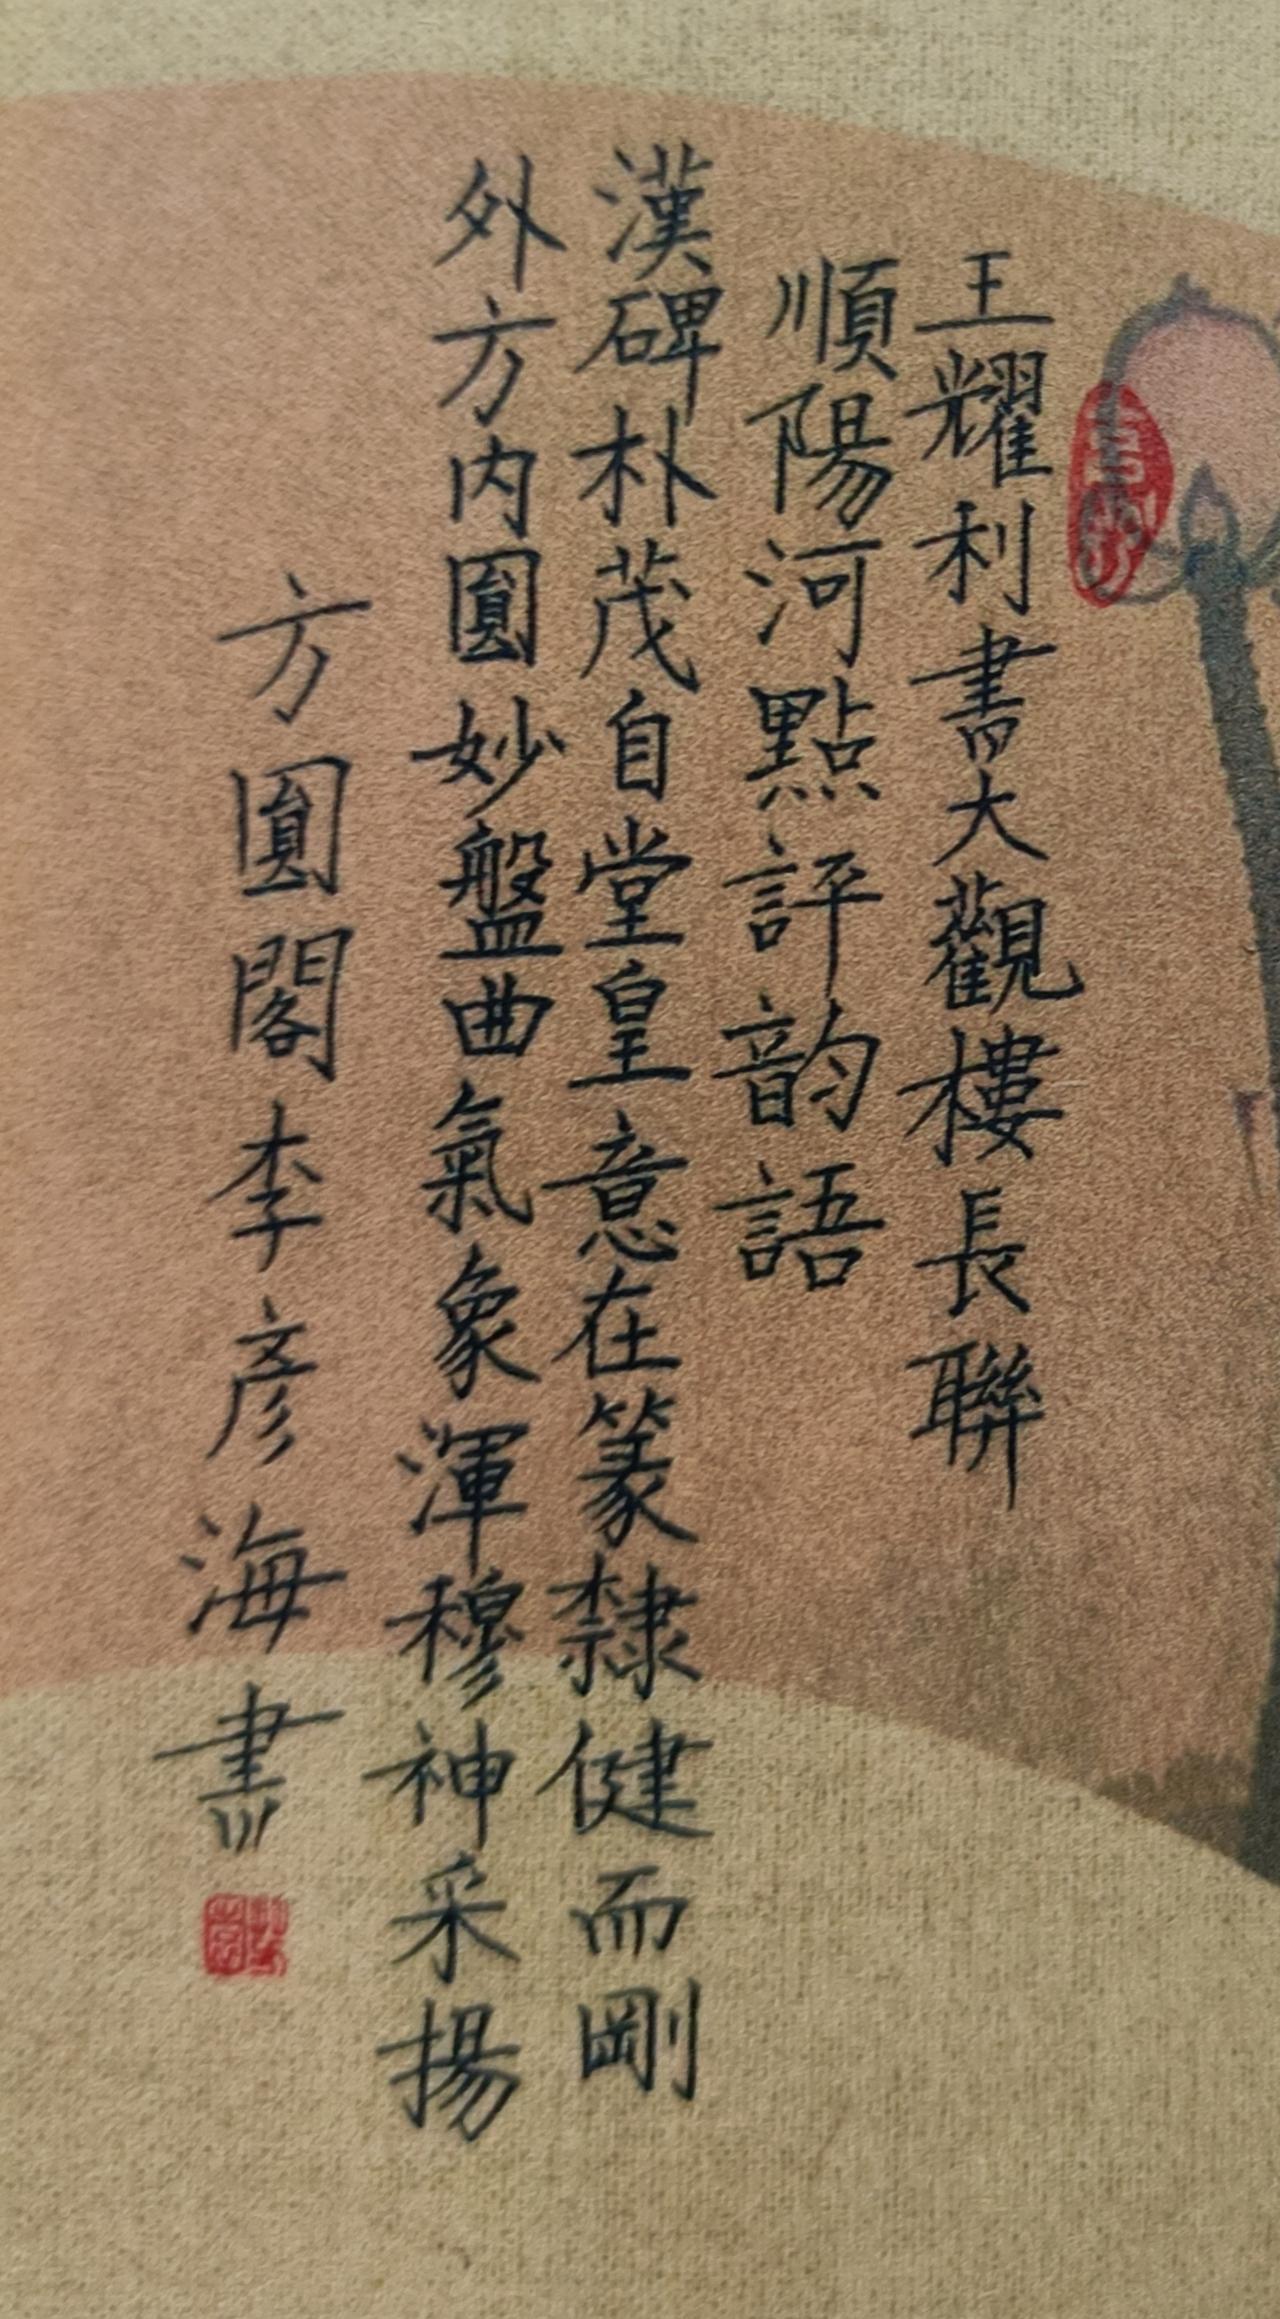 王耀利書大觀樓長聯
順陽河點評韵語
漢碑朴茂自堂皇意在篆隸健而剛
外方内圓妙盤曲氣象渾穆神采揚
方圓閣李彦海書